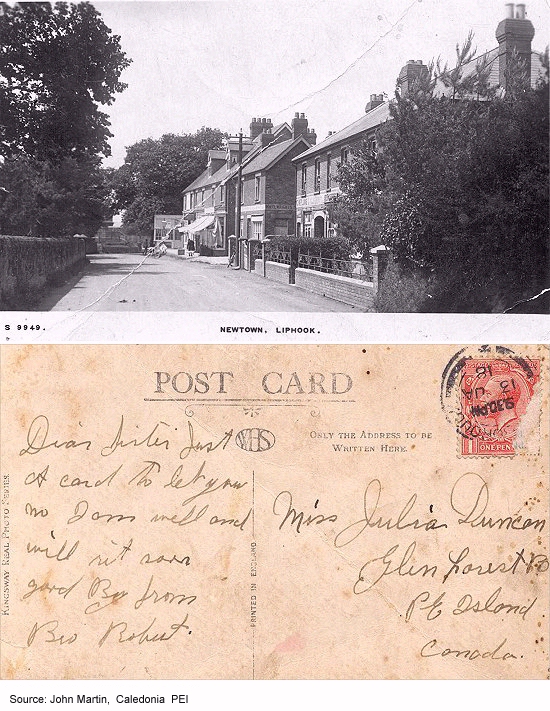 S 9949.
NEWTOWN. LIPHOOK.
POST CARD
WHS
ONLY THE ADDRESS TO BE
WRITTEN HERE.
ONE PENNY
13 JA
18
9.30 PM
KINGSWAY REAL PHOTO SERIES
PRINTED IN ENGLAND
Dear Sister Just
A card to let you
no I am well and
will rit soon
good By from
Bro Robert.
Miss Julia Duncan
Glen forest
P E Island
Canada.
Source: John Martin, Caledonia PEI